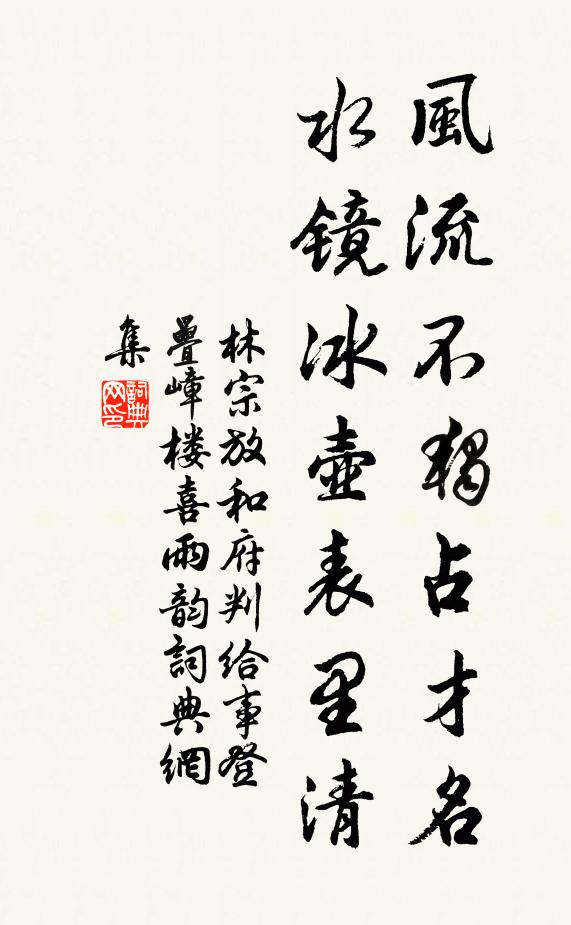 風流不獨占才名
水镜冰壺表里清
林宗放和府判给事登
疊嶂楼喜雨韵詞典網
集
詞典
网印